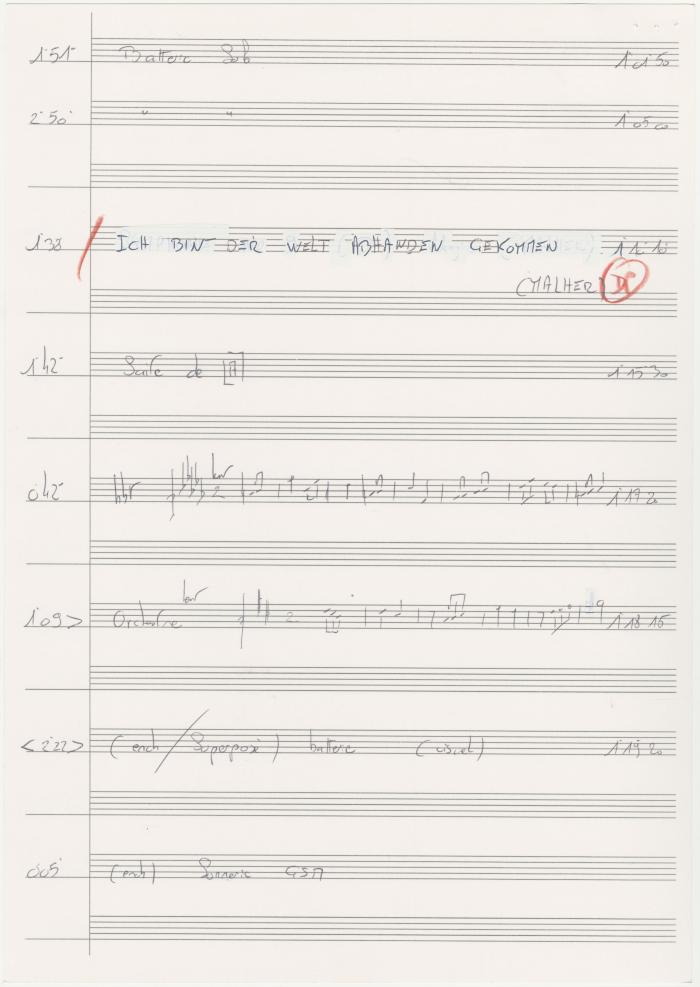 1'51" Batterie Solo 1 01 50
2'50" " " 1 05 00
1'38 ICH BIN DER WELT ABHANDEN GEKOMMEN 1 12 10
(MALHER)
1'42" Suite de 1 15 30
0'42" 1 17 20
1'09> Orchestre 1 18 15
<2'22> (ench / Superposé) batterie 1 19 20
0'05" (ench) Sonnerie GSM